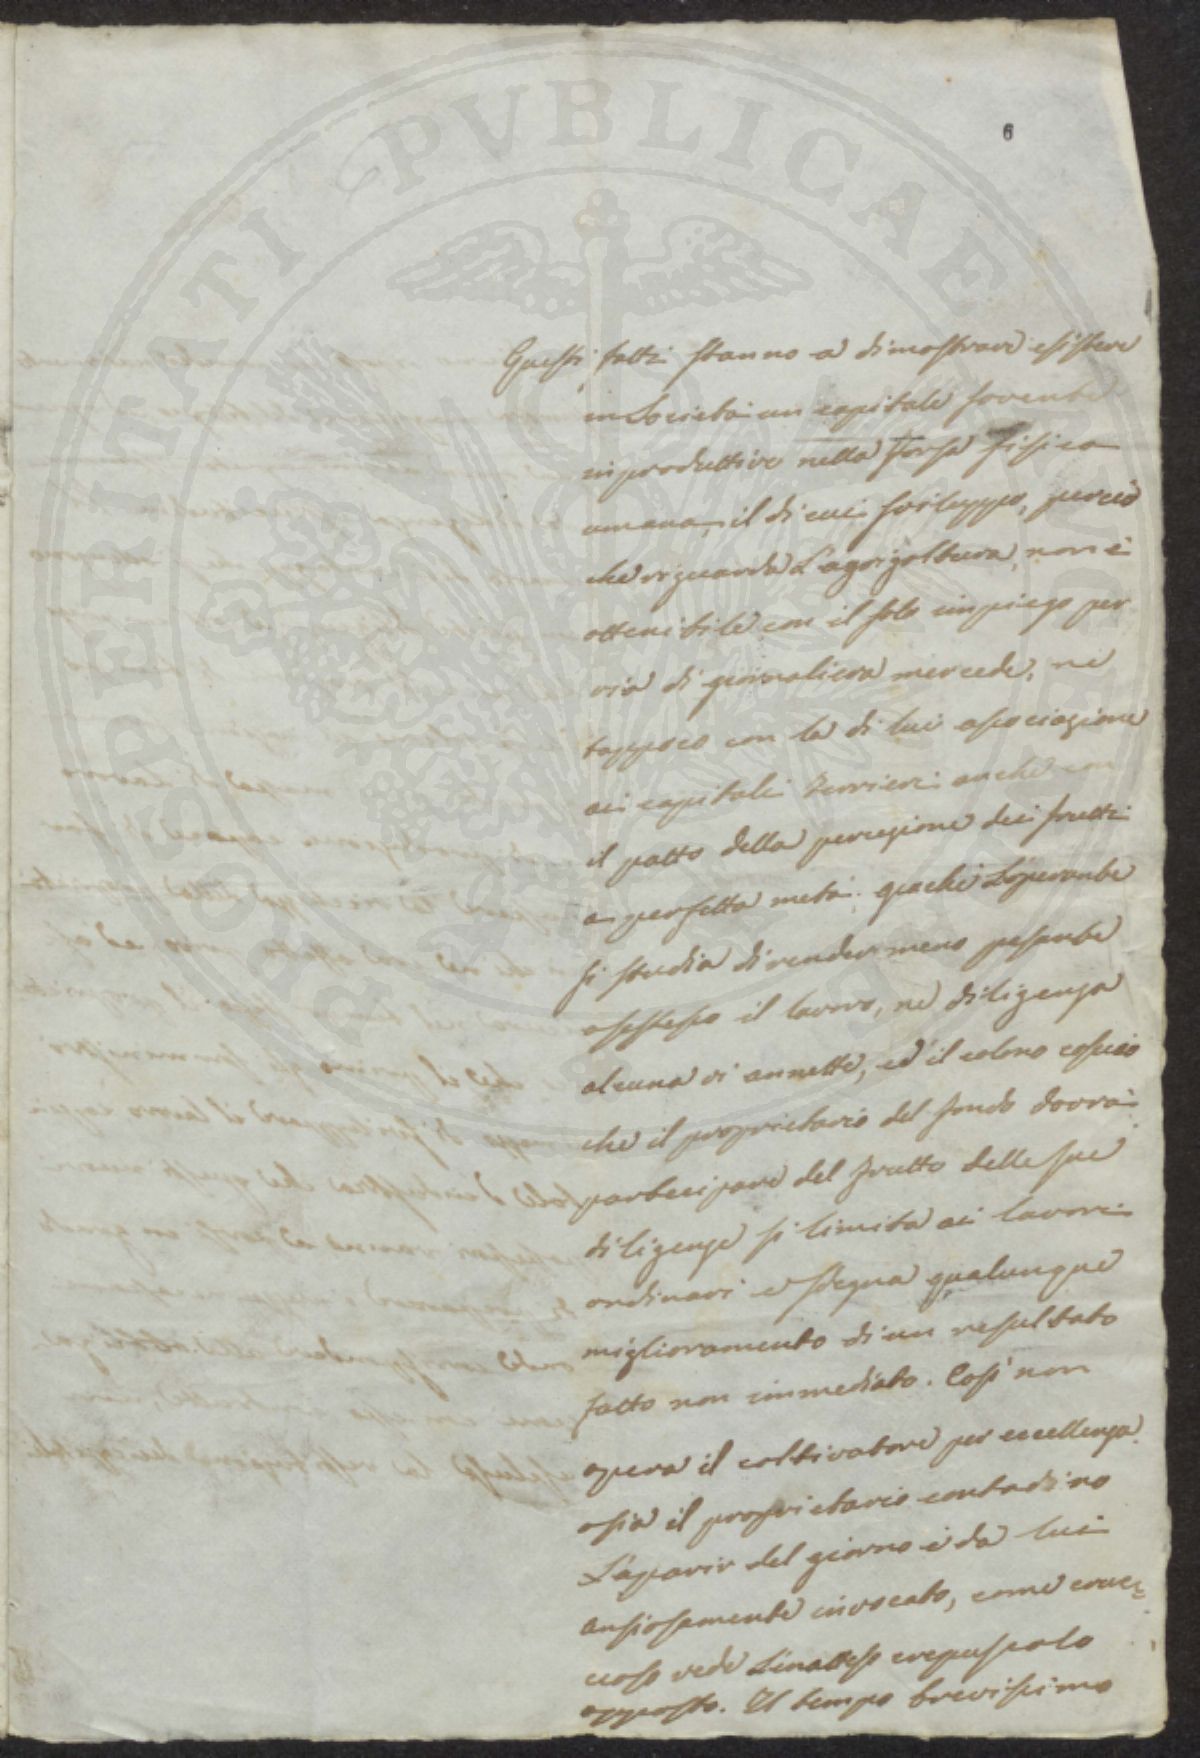 PROSPERITATI PVBLICAE AVGENDAE
6
Questi fatti stanno a dimostrare esistere
in Società un capitale sovente
inproduttivo nella forsa fisica
umana, il di cui sviluppo, perciò
che riguarda L'agrigoltura, non è
ottenibile con il solo impiego per
via di giornaliera mercede, ne
tappoco con la di lui associazione
ai capitali terrieri anche con
il patto della percezione dei frutti
a perfetta metà; giachè L'operante
si studia di render meno pesante
asestesso il lavoro, ne diligenza
alcuna vi annette, ed il colono conscio
che il proprietario del fondo dovrà
partecipare del frutto delle sue
diligenze si limita ai lavori
ordinari e sdegna qualunque
miglioramento di un resultato
fatto non immediato. Così non
opera il coltivatore per eccellenza
osia il proprietario contadino
L'aparir del giorno è da lui
ansiosamente invocato, come cruc=
cioso vede L'inatteso crepuscolo
opposto. Il tempo brevissimo